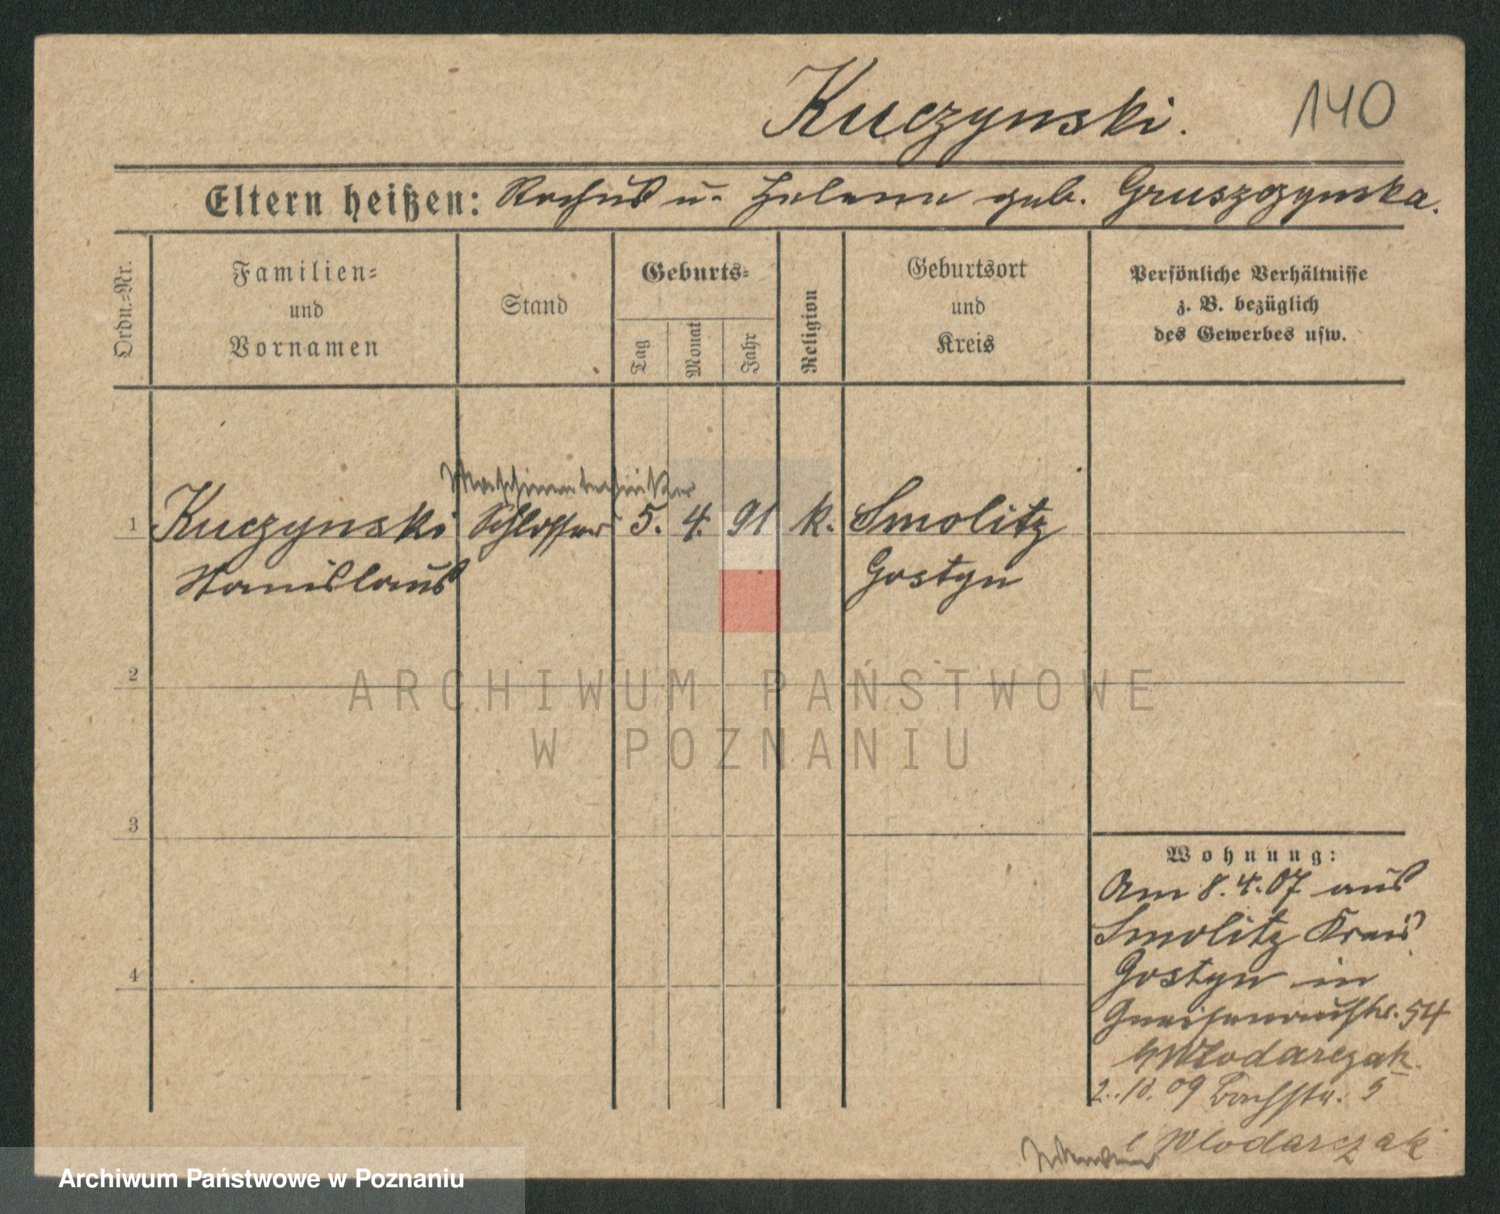 Kuczynski.
140
Eltern heißen: Rochus u. Helene geb. Gruszczynska.
Ordn.=Nr.
Familien=
und
Vornamen
Stand
Geburts=
Tag
Monat
Jahr
Religion
Geburtsort
und
Kreis
Persönliche Verhältnisse
z. B. bezüglich
des Gewerbes usw.
Maschinentechniker
1 Kuczynski Schlosser 5. 4. 91 k. Smolitz
Stanislaus Gostyn
2
3
4
Wohnung:
Am 8.4.07 aus
Smolitz Kreis
Gostyn in
Gneisenaustr. 54
b/Wlodarczak.
2.10.09 Bachstr. 5
Wlodarczak
ARCHIWUM PAŃSTWOWE
W POZNANIU
Archiwum Państwowe w Poznaniu